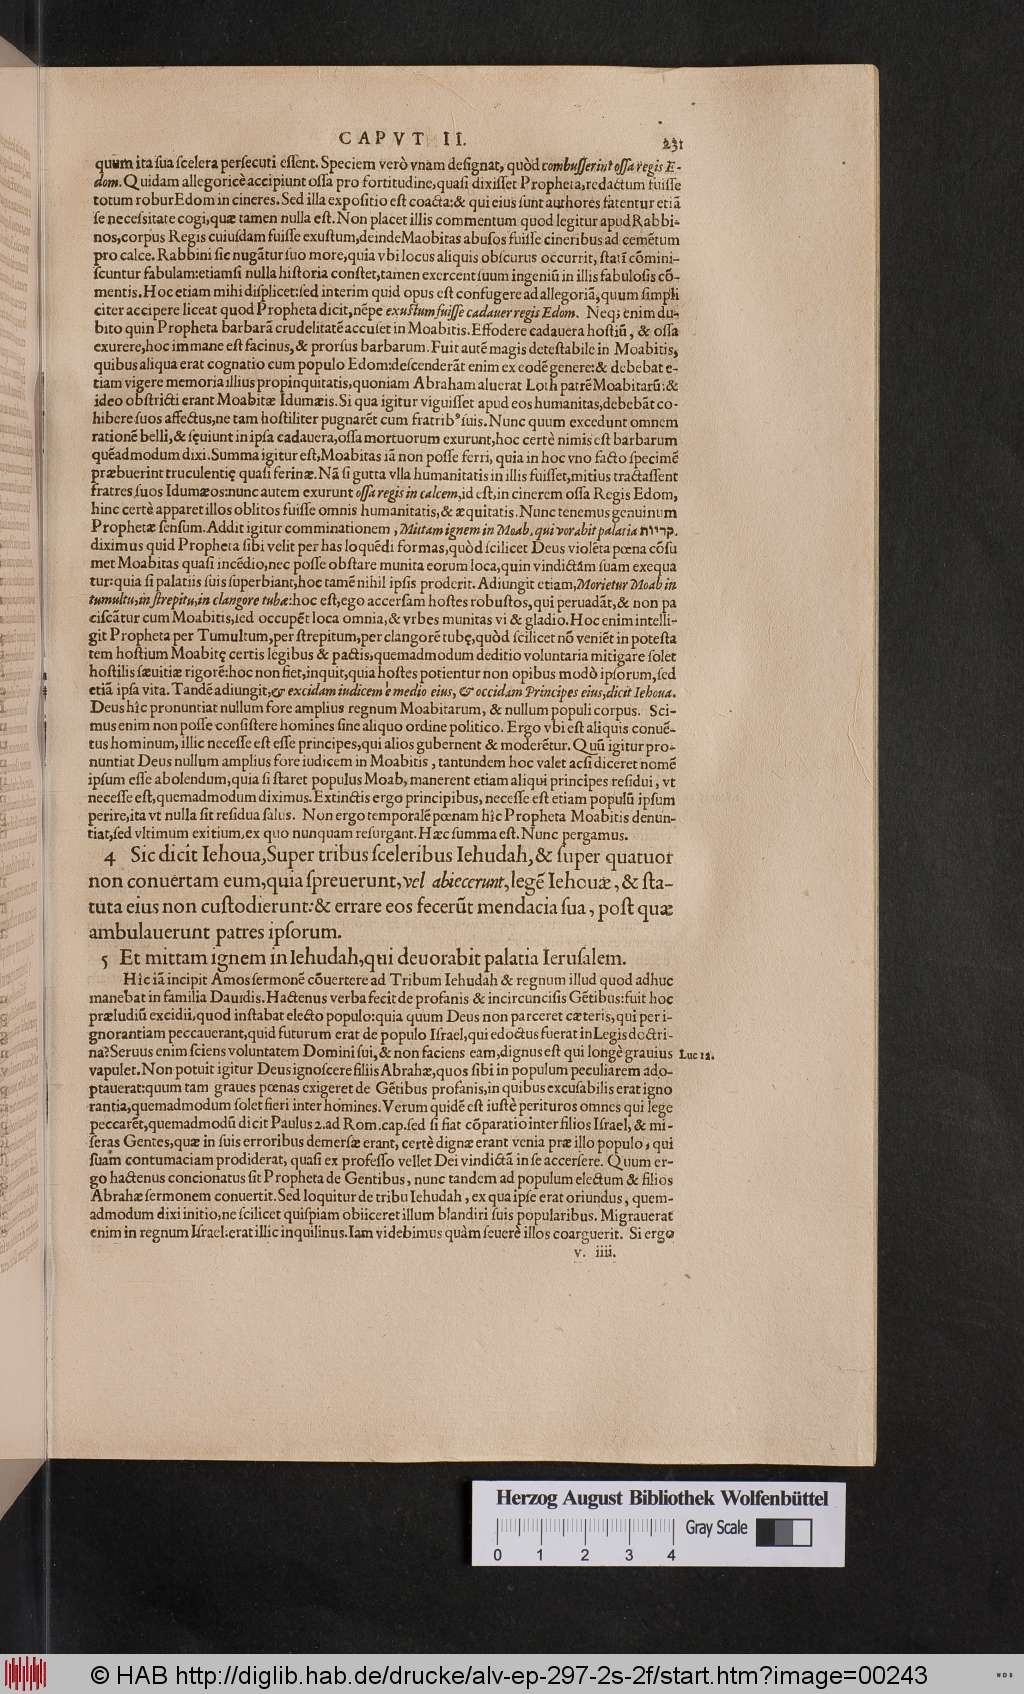 CAPVT II. 231
quum ita sua scelera persecuti essent. Speciem verò vnam designat, quòd combusserint ossa regis E-
dom. Quidam allegoricè accipiunt ossa pro fortitudine, quasi dixisset Propheta, redactum fuisse
totum robur Edom in cineres. Sed illa expositio est coacta: & qui eius sunt authores fatentur etiã
se necessitate cogi, quæ tamen nulla est. Non placet illis commentum quod legitur apud Rabbi-
nos, corpus Regis cuiusdam fuisse exustum, deinde Maobitas abusos fuisse cineribus ad cemẽtum
pro calce. Rabbini sic nugãtur suo more, quia vbi locus aliquis obscurus occurrit, statĩ cõmini-
scuntur fabulam: etiamsi nulla historia constet, tamen exercent suum ingeniũ in illis fabulosis cõ-
mentis. Hoc etiam mihi displicet: sed interim quid opus est confugere ad allegoriã, quum simpli
citer accipere liceat quod Propheta dicit, nẽpe exustum fuisse cadauer regis Edom. Neq; enim du-
bito quin Propheta barbarã crudelitatẽ accuset in Moabitis. Effodere cadauera hostiũ, & ossa
exurere, hoc immane est facinus, & prorsus barbarum. Fuit autẽ magis detestabile in Moabitis,
quibus aliqua erat cognatio cum populo Edom: descenderãt enim ex eodẽ genere: & debebat e-
tiam vigere memoria illius propinquitatis, quoniam Abraham aluerat Loth patrẽ Moabitarũ: &
ideo obstricti erant Moabitæ Idumæis. Si qua igitur viguisset apud eos humanitas, debebãt co-
hibere suos affectus, ne tam hostiliter pugnarẽt cum fratribꝰ suis. Nunc quum excedunt omnem
rationẽ belli, & sęuiunt in ipsa cadauera, ossa mortuorum exurunt, hoc certè nimis est barbarum
quẽadmodum dixi. Summa igitur est, Moabitas iã non posse ferri, quia in hoc vno facto specimẽ
præbuerint truculentię quasi ferinæ. Nã si gutta vlla humanitatis in illis fuisset, mitius tractassent
fratres suos Idumæos: nunc autem exurunt ossa regis in calcem, id est, in cinerem ossa Regis Edom,
hinc certè apparet illos oblitos fuisse omnis humanitatis, & æquitatis. Nunc tenemus genuinum
Prophetæ sensum. Addit igitur comminationem, Mittam ignem in Moab, qui vorabit palatia קריות.
diximus quid Propheta sibi velit per has loquẽdi formas, quòd scilicet Deus violẽta pœna cõsu
met Moabitas quasi incẽdio, nec posse obstare munita eorum loca, quin vindictam suam exequa
tur: quia si palatiis suis superbiant, hoc tamẽ nihil ipsis proderit. Adiungit etiam, Morietur Moab in
tumultu, in strepitu, in clangore tubæ: hoc est, ego accersam hostes robustos, qui peruadãt, & non pa
ciscãtur cum Moabitis, sed occupẽt loca omnia, & vrbes munitas vi & gladio. Hoc enim intelli-
git Propheta per Tumultum, per strepitum, per clangorẽ tubę, quòd scilicet nõ veniẽt in potesta
tem hostium Moabitę certis legibus & pactis, quemadmodum deditio voluntaria mitigare solet
hostilis sæuitiæ rigorẽ: hoc non fiet, inquit, quia hostes potientur non opibus modò ipsorum, sed
etiã ipsa vita. Tandẽ adiungit, & excidam iudicem è medio eius, & occidam Principes eius, dicit Iehoua.
Deus hîc pronuntiat nullum fore amplius regnum Moabitarum, & nullum populi corpus. Sci-
mus enim non posse consistere homines sine aliquo ordine politico. Ergo vbi est aliquis conuẽ-
tus hominum, illic necesse est esse principes, qui alios gubernent & moderẽtur. Quũ igitur pro-
nuntiat Deus nullum amplius fore iudicem in Moabitis, tantundem hoc valet acsi diceret nomẽ
ipsum esse abolendum, quia si staret populus Moab, manerent etiam aliqui principes residui, vt
necesse est, quemadmodum diximus. Extinctis ergo principibus, necesse est etiam populũ ipsum
perire, ita vt nulla sit residua salus. Non ergo temporalẽ pœnam hîc Propheta Moabitis denun-
tiat, sed vltimum exitium, ex quo nunquam resurgant. Hæc summa est. Nunc pergamus.
4 Sic dicit Iehoua, Super tribus sceleribus Iehudah, & super quatuor
non conuertam eum, quia spreuerunt, vel abiecerunt, legẽ Iehouæ, & sta-
tuta eius non custodierunt: & errare eos fecerũt mendacia sua, post quæ
ambulauerunt patres ipsorum.
5 Et mittam ignem in Iehudah, qui deuorabit palatia Ierusalem.
Hîc iã incipit Amos sermonẽ cõuertere ad Tribum Iehudah & regnum illud quod adhuc
manebat in familia Dauidis. Hactenus verba fecit de profanis & incircuncisis Gẽtibus: fuit hoc
præludiũ excidii, quod instabat electo populo: quia quum Deus non parceret cæteris, qui per i-
gnorantiam peccauerant, quid futurum erat de populo Israel, qui edoctus fuerat in Legis doctri-
na? Seruus enim sciens voluntatem Domini sui, & non faciens eam, dignus est qui longè grauius Luc 12.
vapulet. Non potuit igitur Deus ignoscere filiis Abrahæ, quos sibi in populum peculiarem ado-
ptauerat: quum tam graues pœnas exigeret de Gẽtibus profanis, in quibus excusabilis erat igno
rantia, quemadmodum solet fieri inter homines. Verum quidẽ est iustè perituros omnes qui lege
peccarẽt, quemadmodũ dicit Paulus 2. ad Rom. cap. sed si fiat cõparatio inter filios Israel, & mi-
seras Gentes, quæ in suis erroribus demersæ erant, certè dignæ erant venia præ illo populo, qui
suam contumaciam prodiderat, quasi ex professo vellet Dei vindictã in se accersere. Quum er-
go hactenus concionatus sit Propheta de Gentibus, nunc tandem ad populum electum & filios
Abrahæ sermonem conuertit. Sed loquitur de tribu Iehudah, ex qua ipse erat oriundus, quem-
admodum dixi initio, ne scilicet quispiam obiiceret illum blandiri suis popularibus. Migrauerat
enim in regnum Israel: erat illic inquilinus. Iam videbimus quàm seuerè illos coarguerit. Si ergo
v. iiii.
Herzog August Bibliothek Wolfenbüttel
Gray Scale
0 1 2 3 4
© HAB http://diglib.hab.de/drucke/alv-ep-297-2s-2f/start.htm?image=00243
WDB